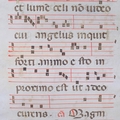 et lumē celi nō vidēo
cui angelus inquit
forti animo esto in
proximo est ut a deo
cureris Magn